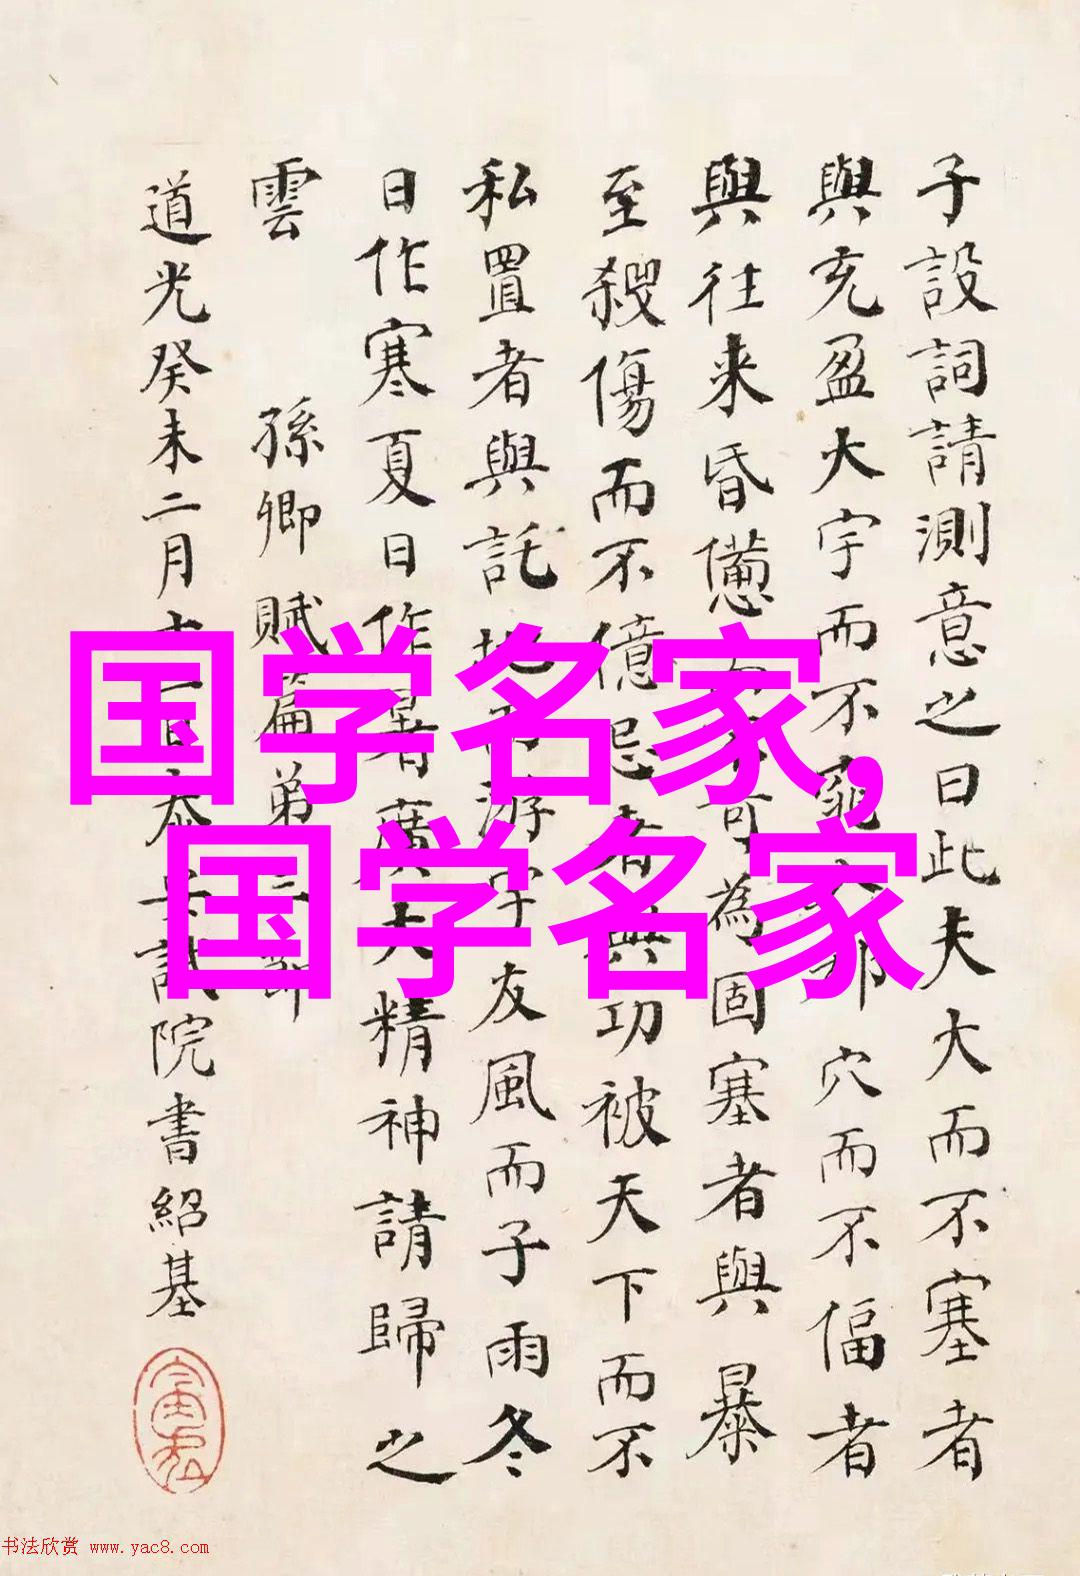 子設詞請測意之曰此夫大而不塞者
與充盈大宇而不窕入郄穴而不偪者
與往来昏憊而不可為固塞者與暴
至殺傷而不億忌者與功被天下而不
私置者與託地而游宇友風而子雨冬
日作寒夏日作暑廣大精神請歸之
雲 孫卿賦篇弟
道光癸未二月
院書紹基
国学名家,
国学名家
书法欣赏 www.yac8.com